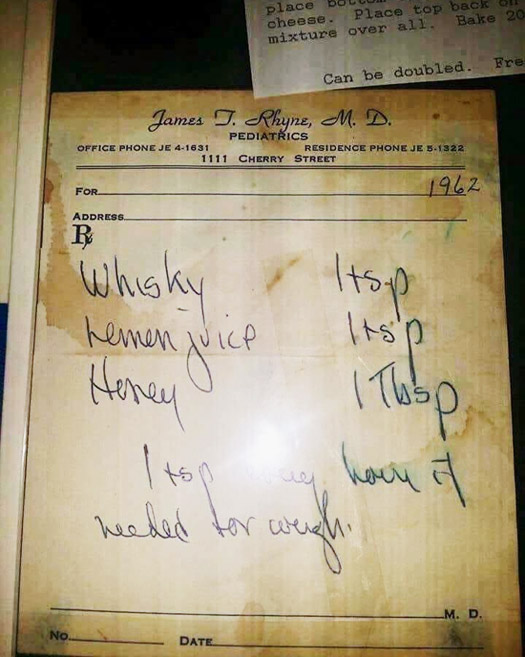 place bottom
cheese. Place top back on
mixture over all. Bake 20
Can be doubled. Fre
James T. Rhyne, M. D.
PEDIATRICS
OFFICE PHONE JE 4-1631 RESIDENCE PHONE JE 5-1322
1111 CHERRY STREET
FOR 1962
ADDRESS
℞
Whisky 1 tsp
Lemon juice 1 tsp
Honey 1 Tbsp
1 tsp hour if
needed for cough.
M. D.
No. DATE